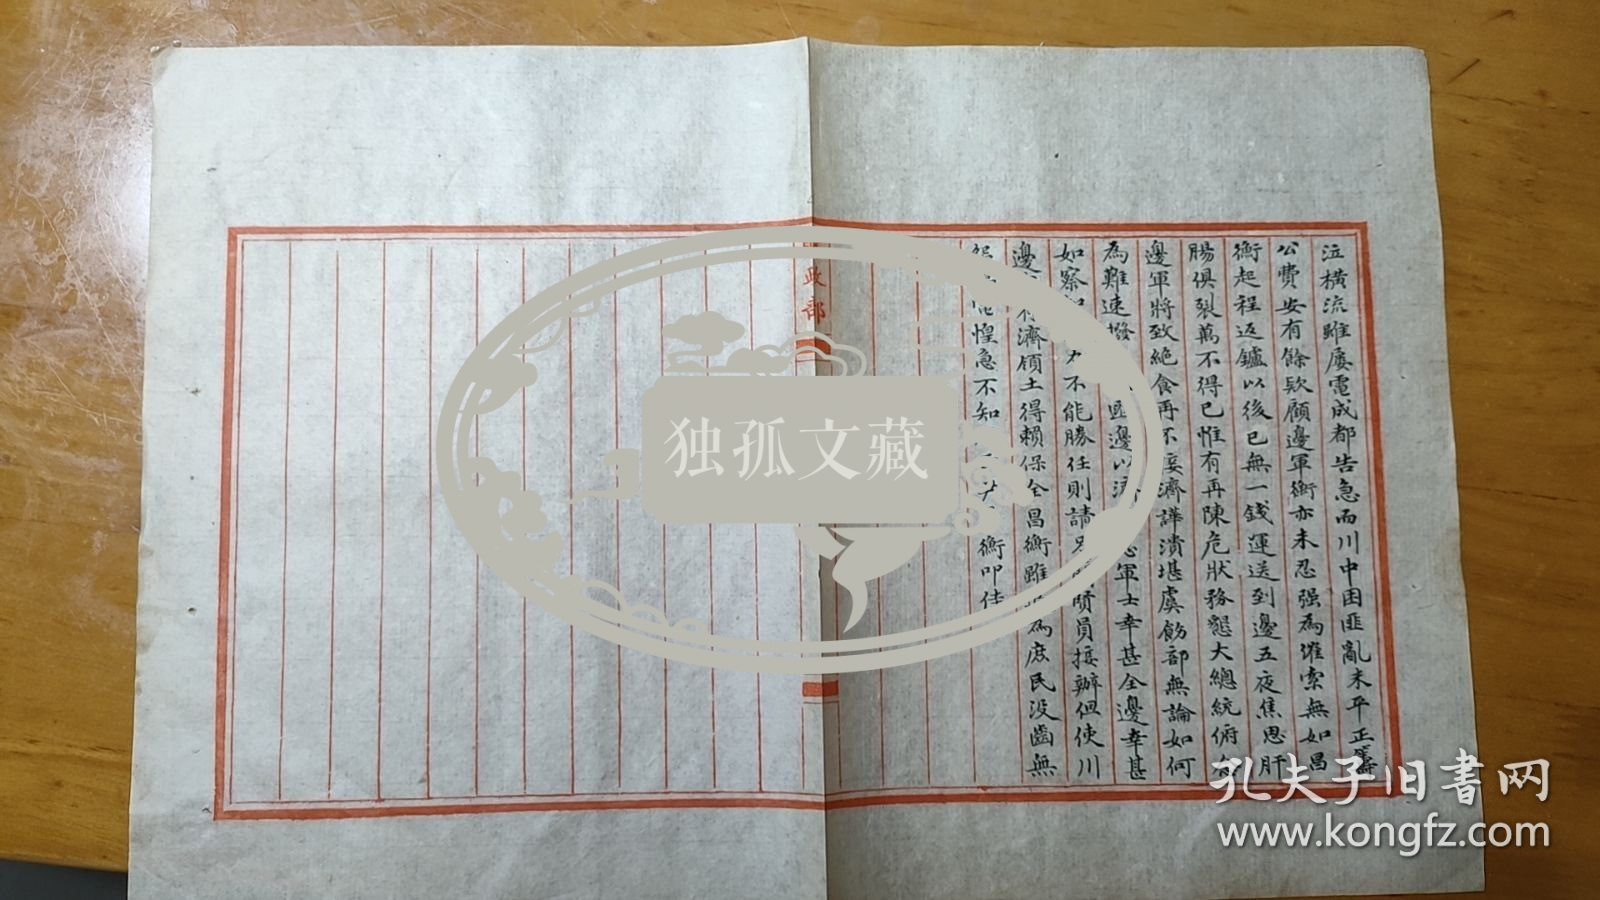 泣橫流雖屢電成都告急而川中困匪亂未平正籌
公費安有餘欵顧邊軍衡亦未忍强為催索無如昌
衡起程返鑪以後已無一錢運送到邊五夜焦思肝
腸俱裂萬不得已惟有再陳危狀務懇大總統俯
邊軍將致絕食再不接濟譁潰堪虞飭部無論如何
為難速撥 邊以濟 軍士幸甚全邊幸甚
如察 力不能勝任則請 賢員接辦但使川
邊 濟領土得賴保全昌衡雖 為庶民沒齒無
惶急不知 衡叩佳
政部
独孤文藏
孔夫子旧书网
www.kongfz.com